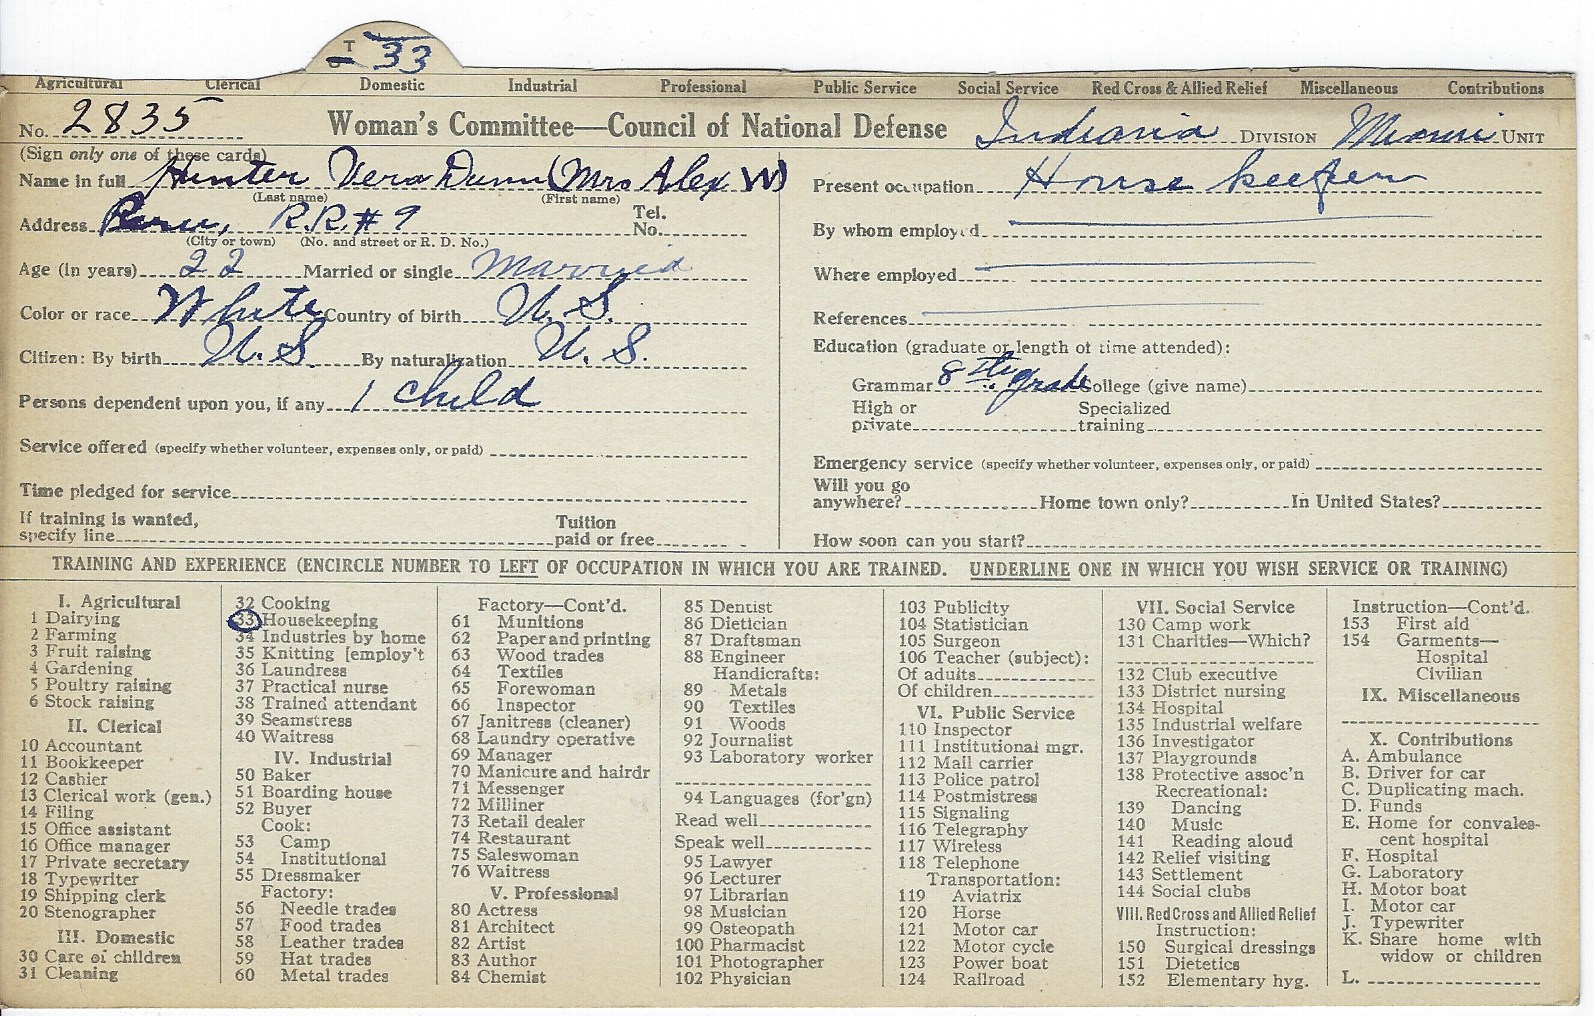 T 33
Agricultural Clerical Domestic Industrial Professional Public Service Social Service Red Cross & Allied Relief Miscellaneous Contributions
No. 2835 Woman's Committee—Council of National Defense Indiana DIVISION Miami UNIT
(Sign only one of these cards)
Name in full Hunter Vera Dunn (Mrs Alex W)
(Last name) (First name)
Address Peru, R.R. # 9 Tel. No.
(City or town) (No. and street or R. D. No.)
Age (in years) 22 Married or single Married
Color or race White Country of birth U. S.
Citizen: By birth U. S. By naturalization U. S.
Persons dependent upon you, if any 1 child
Service offered (specify whether volunteer, expenses only, or paid)
Time pledged for service
If training is wanted, Tuition
specify line paid or free
Present occupation House keeper
By whom employed
Where employed
References
Education (graduate or length of time attended):
Grammar 8th grade College (give name)
High or Specialized
private training
Emergency service (specify whether volunteer, expenses only, or paid)
Will you go
anywhere? Home town only? In United States?
How soon can you start?
TRAINING AND EXPERIENCE (ENCIRCLE NUMBER TO LEFT OF OCCUPATION IN WHICH YOU ARE TRAINED. UNDERLINE ONE IN WHICH YOU WISH SERVICE OR TRAINING)
I. Agricultural
1 Dairying
2 Farming
3 Fruit raising
4 Gardening
5 Poultry raising
6 Stock raising
II. Clerical
10 Accountant
11 Bookkeeper
12 Cashier
13 Clerical work (gen.)
14 Filing
15 Office assistant
16 Office manager
17 Private secretary
18 Typewriter
19 Shipping clerk
20 Stenographer
III. Domestic
30 Care of children
31 Cleaning
32 Cooking
33 Housekeeping
34 Industries by home
35 Knitting [employ't
36 Laundress
37 Practical nurse
38 Trained attendant
39 Seamstress
40 Waitress
IV. Industrial
50 Baker
51 Boarding house
52 Buyer
Cook:
53 Camp
54 Institutional
55 Dressmaker
Factory:
56 Needle trades
57 Food trades
58 Leather trades
59 Hat trades
60 Metal trades
Factory—Cont'd.
61 Munitions
62 Paper and printing
63 Wood trades
64 Textiles
65 Forewoman
66 Inspector
67 Janitress (cleaner)
68 Laundry operative
69 Manager
70 Manicure and hairdr
71 Messenger
72 Milliner
73 Retail dealer
74 Restaurant
75 Saleswoman
76 Waitress
V. Professional
80 Actress
81 Architect
82 Artist
83 Author
84 Chemist
85 Dentist
86 Dietician
87 Draftsman
88 Engineer
Handicrafts:
89 Metals
90 Textiles
91 Woods
92 Journalist
93 Laboratory worker
94 Languages (for'gn)
Read well
Speak well
95 Lawyer
96 Lecturer
97 Librarian
98 Musician
99 Osteopath
100 Pharmacist
101 Photographer
102 Physician
103 Publicity
104 Statistician
105 Surgeon
106 Teacher (subject):
Of adults
Of children
VI. Public Service
110 Inspector
111 Institutional mgr.
112 Mail carrier
113 Police patrol
114 Postmistress
115 Signaling
116 Telegraphy
117 Wireless
118 Telephone
Transportation:
119 Aviatrix
120 Horse
121 Motor car
122 Motor cycle
123 Power boat
124 Railroad
VII. Social Service
130 Camp work
131 Charities—Which?
132 Club executive
133 District nursing
134 Hospital
135 Industrial welfare
136 Investigator
137 Playgrounds
138 Protective assoc'n
Recreational:
139 Dancing
140 Music
141 Reading aloud
142 Relief visiting
143 Settlement
144 Social clubs
VIII. Red Cross and Allied Relief
Instruction:
150 Surgical dressings
151 Dietetics
152 Elementary hyg.
Instruction—Cont'd.
153 First aid
154 Garments—
Hospital
Civilian
IX. Miscellaneous
X. Contributions
A. Ambulance
B. Driver for car
C. Duplicating mach.
D. Funds
E. Home for convales-
cent hospital
F. Hospital
G. Laboratory
H. Motor boat
I. Motor car
J. Typewriter
K. Share home with
widow or children
L.